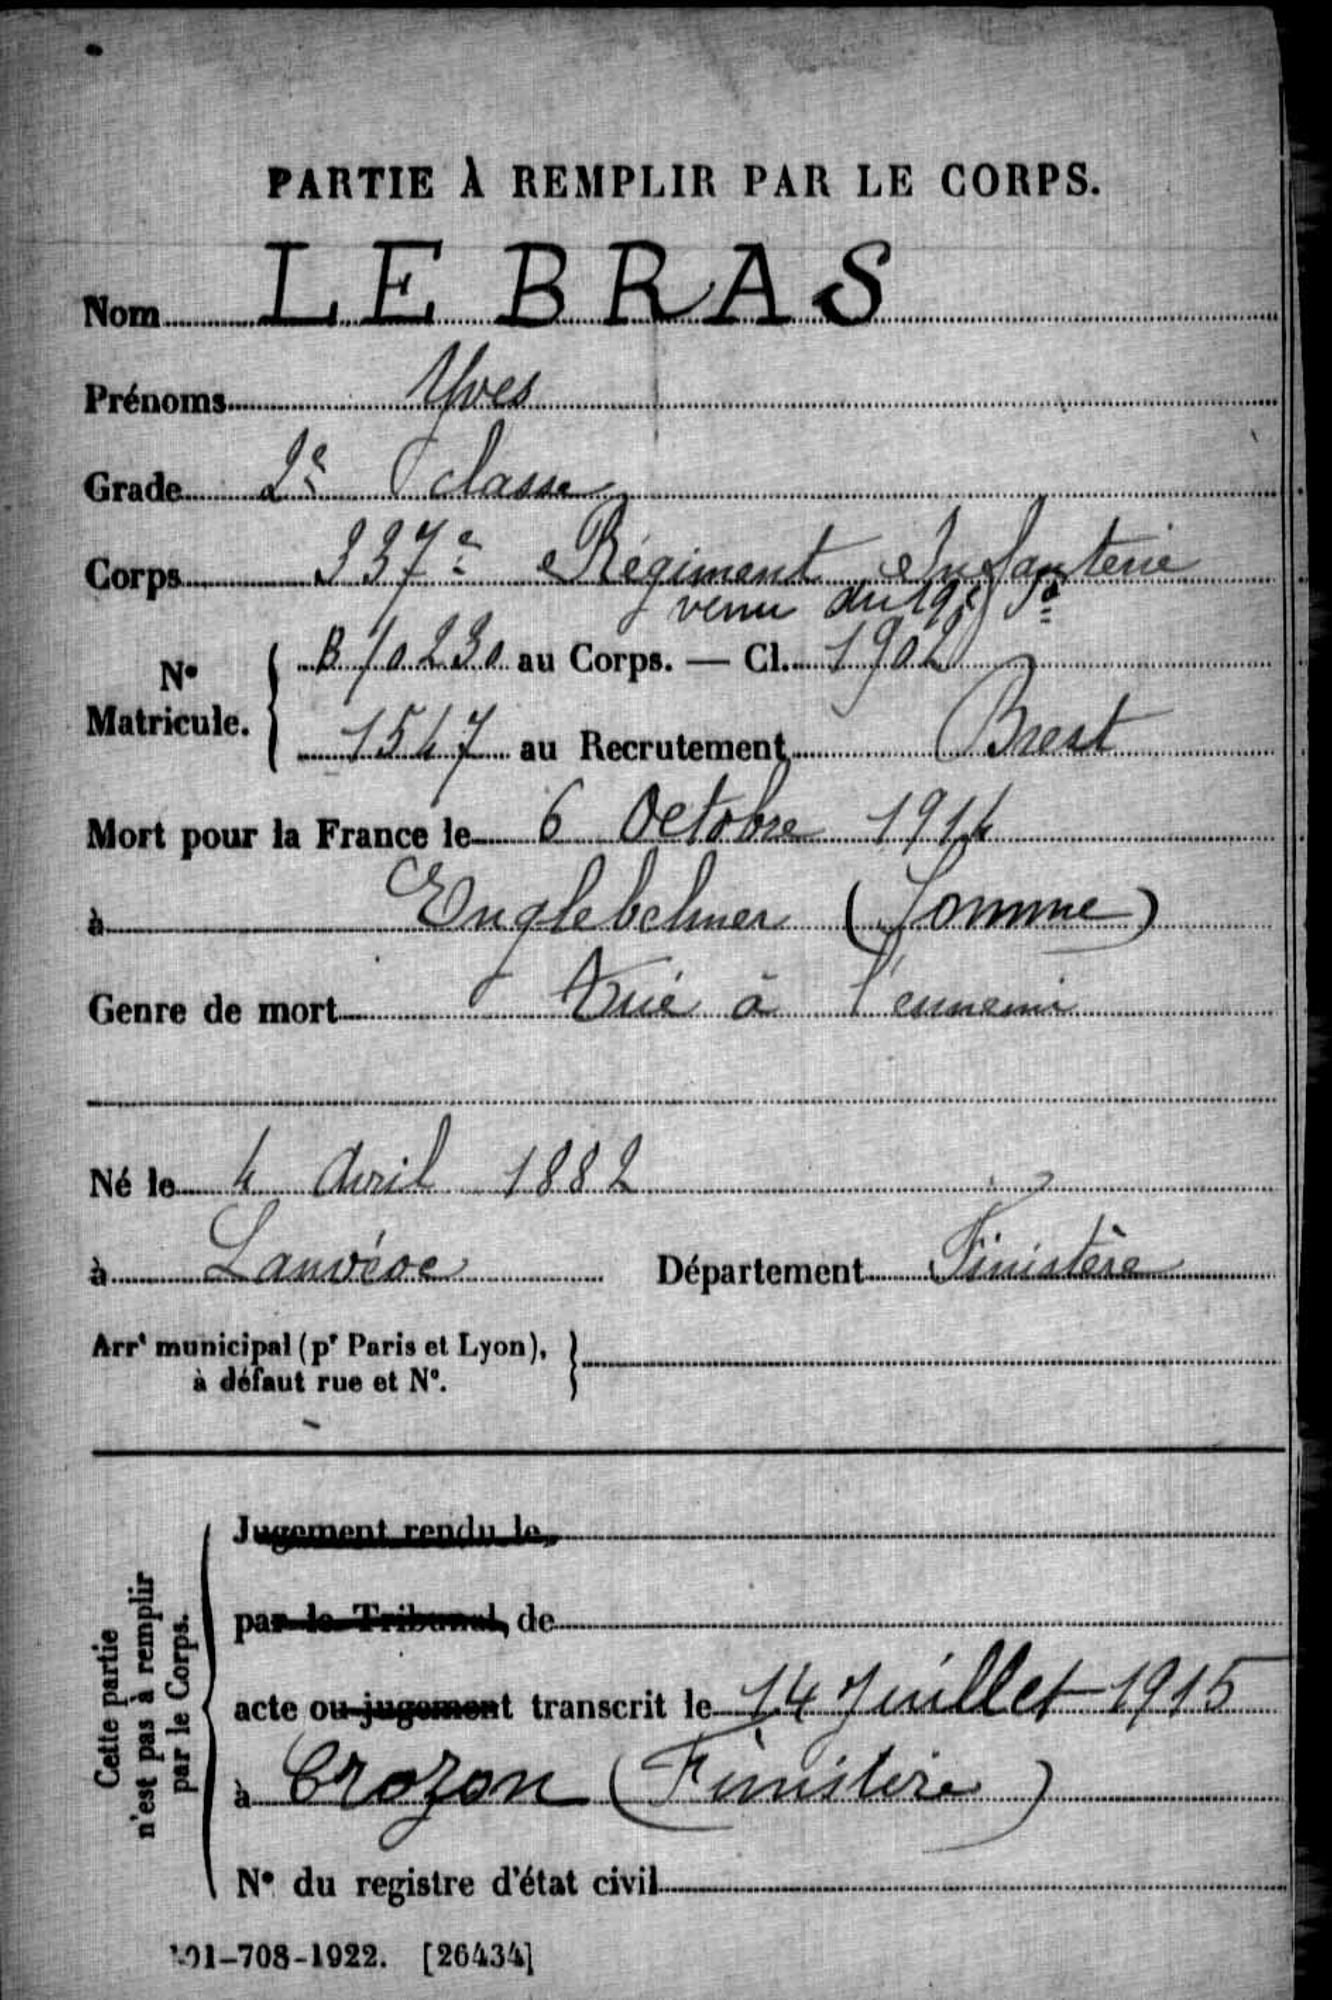 PARTIE À REMPLIR PAR LE CORPS.
Nom LE BRAS
Prénoms Yves
Grade 2e classe
Corps 337e Régiment Infanterie
venu du 19e Ie
No Matricule. B 10230 au Corps. — Cl. 1902
1547 au Recrutement Brest
Mort pour la France le 6 Octobre 1914
à Englebelmer (Somme)
Genre de mort Tué à l'ennemi
Né le 4 Avril 1882
à Lanvéoc Département Finistère
Arrt municipal (pr Paris et Lyon),
à défaut rue et No.
Cette partie
n'est pas à remplir
par le Corps.
Jugement rendu le
par le Tribunal de
acte ou jugement transcrit le 14 Juillet 1915
à Crozon (Finistère)
No du registre d'état civil
101-708-1922. [26434]